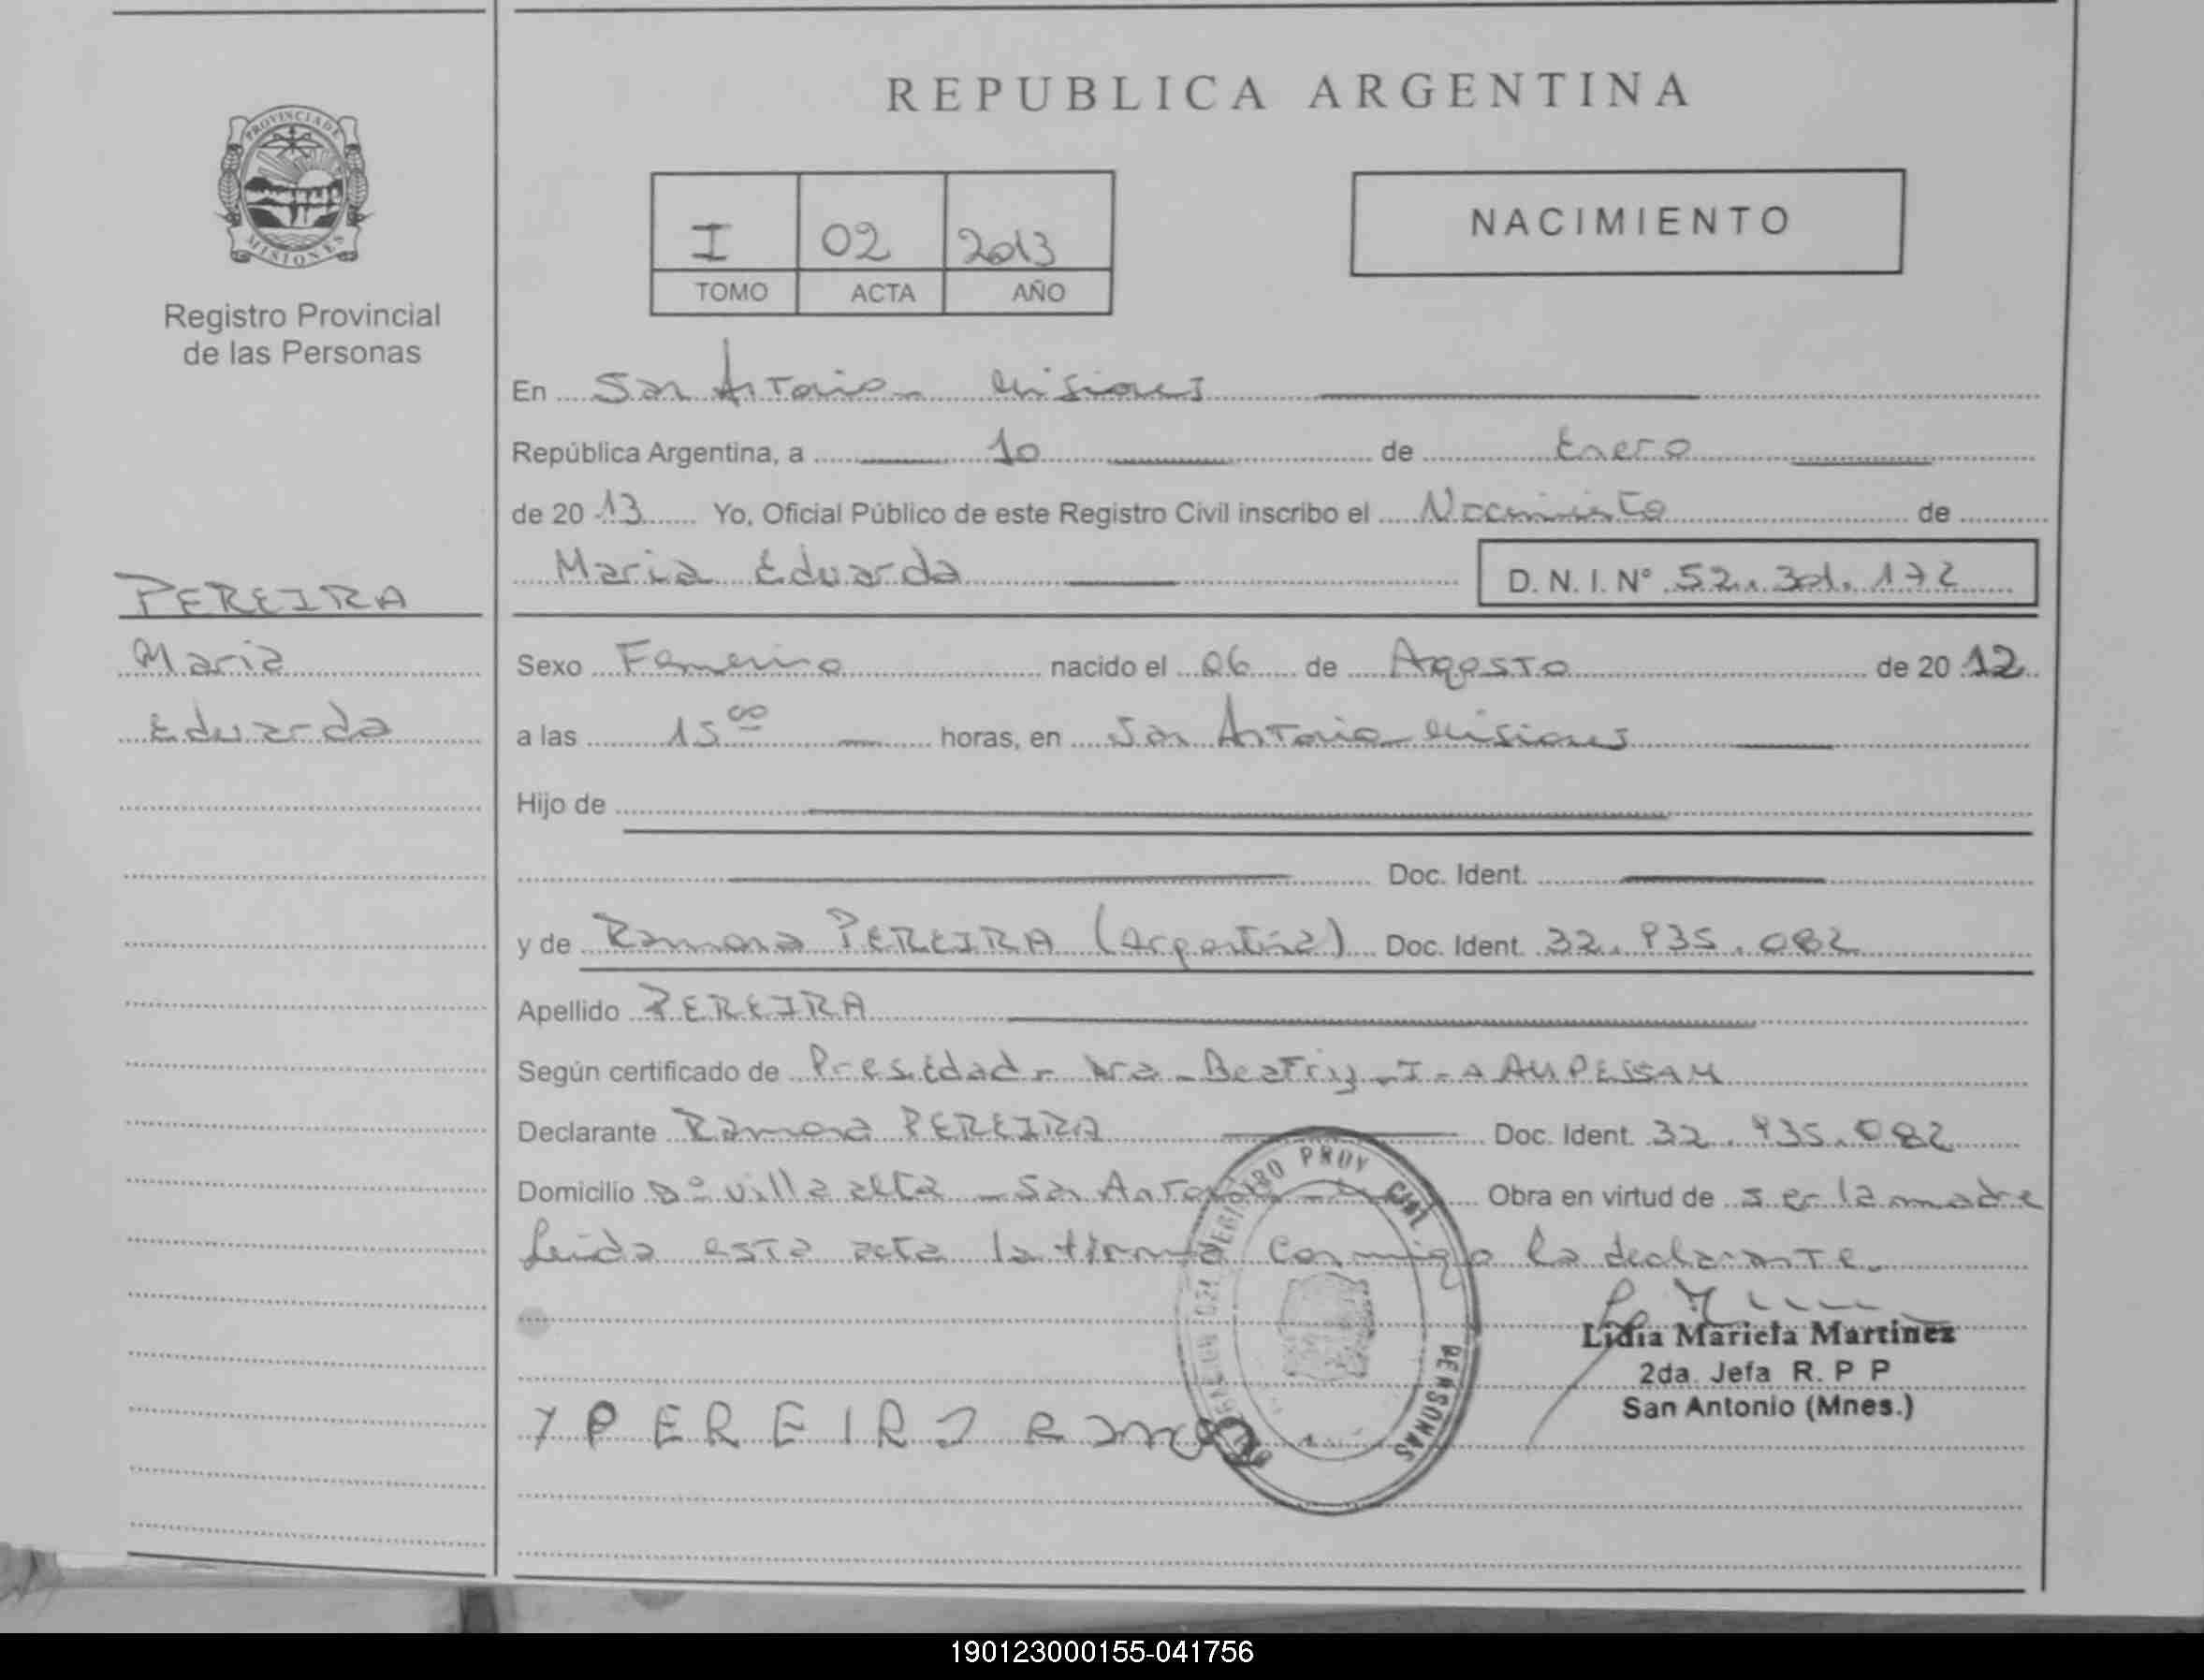 REPUBLICA ARGENTINA
PROVINCIA DE
MISIONES
Registro Provincial
de las Personas
I 02 2013
TOMO ACTA AÑO
NACIMIENTO
En San Antonio - Misiones
República Argentina, a 10 de Enero
de 20 13 Yo, Oficial Público de este Registro Civil inscribo el Nacimiento de
Maria Eduarda D. N. I. Nº 52.301.172
PEREIRA
Maria
Eduarda
Sexo Femenino nacido el 06 de Agosto de 20 12
a las 15 00 horas, en San Antonio - Misiones
Hijo de
Doc. Ident.
y de Ramona PEREIRA (argentina) Doc. Ident. 32.935.082
Apellido PEREIRA
Según certificado de Dra - Beatriz - I -
Declarante Ramona PEREIRA Doc. Ident. 32.935.082
Domicilio Bº villa alta - San Antonio Obra en virtud de ser la madre
Leida esta acta la firma conmigo la declarante.
PERSONAS
Lidia Mariela Martinez
2da. Jefa R. P P
San Antonio (Mnes.)
PEREIRA Ramona
190123000155-041756